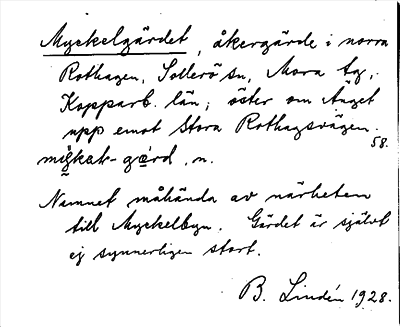 Myckelgärdet, åkergärde i norra
Rothagen, Sollerö sn, Mora tg,
Kopparb. län; öster om Änget
upp emot Stora Rothagsvägen.
58.
n.
Namnet måhända av närheten
till Myckelbyn. Gärdet är självt
ej synnerligen stort.
B. Lindén 1928.